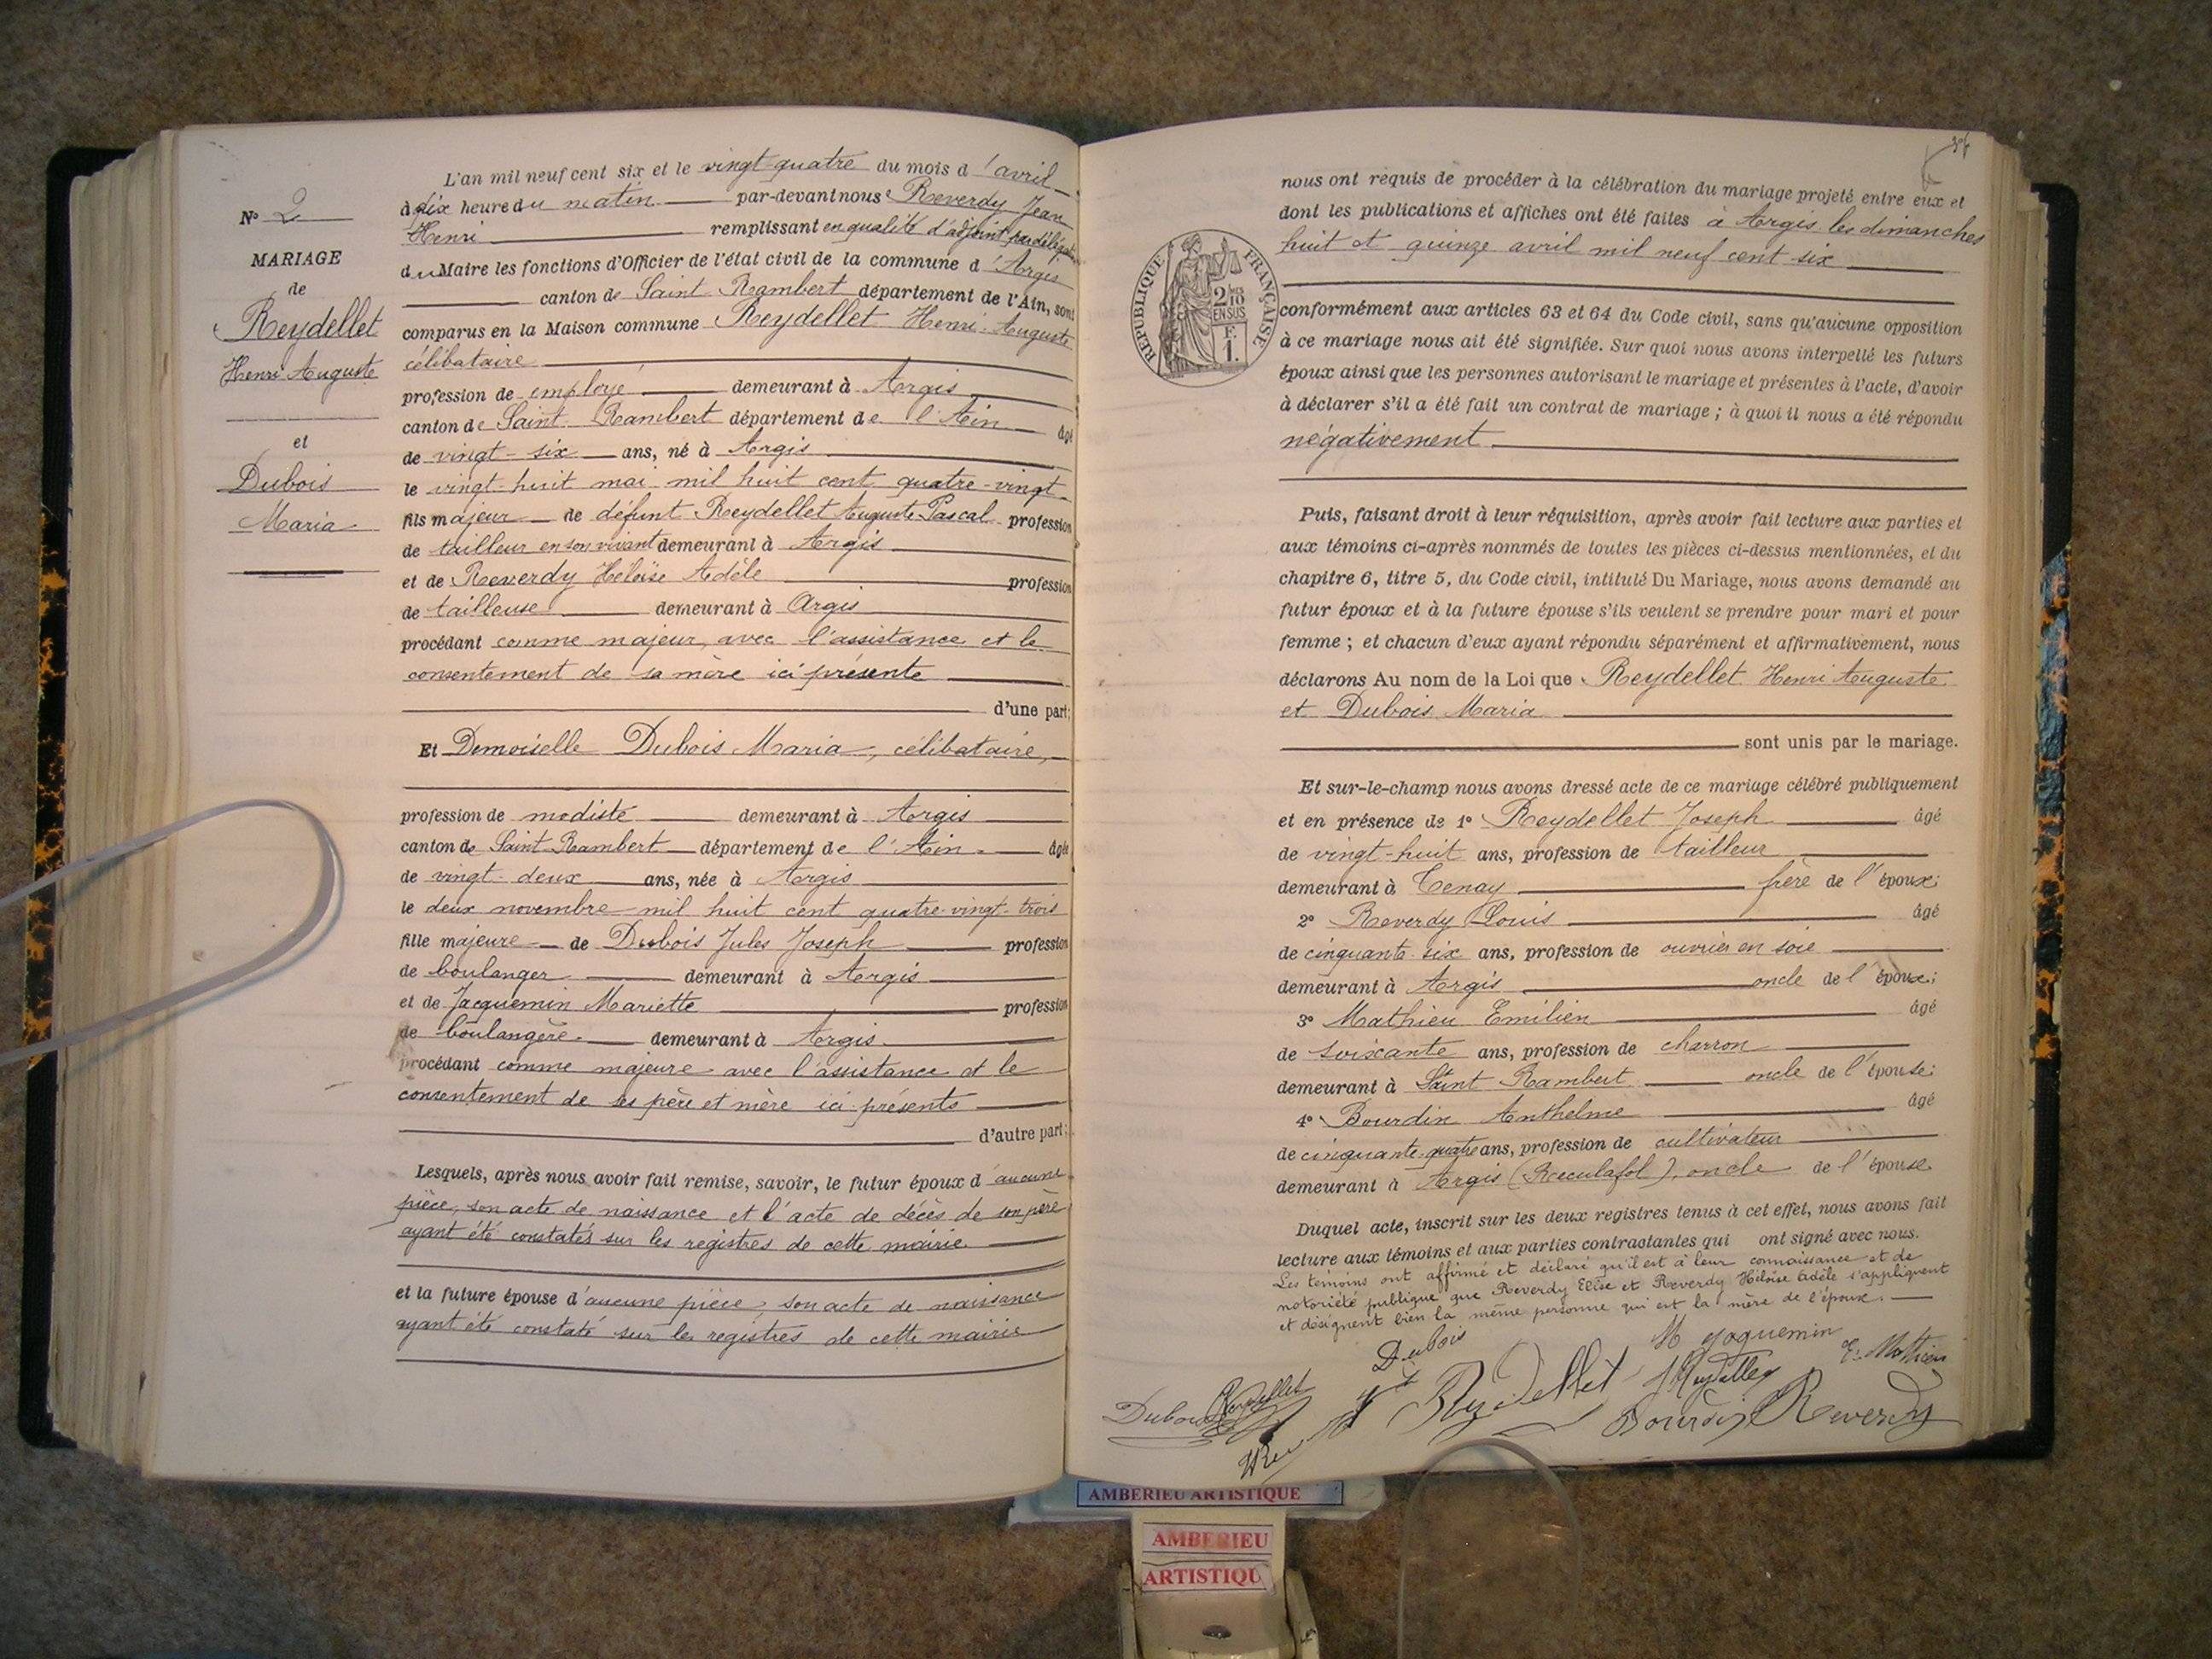 N° 2
MARIAGE
de
Reydellet
Henri Auguste
et
Dubois
Maria
L'an mil neuf cent six et le vingt-quatre du mois d'avril
à dix heure du matin par-devant nous Reverdy Jean
Henri remplissant en qualité d'adjoint par délégation
du Maire les fonctions d'Officier de l'état civil de la commune d'Argis
canton de Saint-Rambert département de l'Ain, sont
comparus en la Maison commune Reydellet Henri-Auguste
célibataire
profession de employé demeurant à Argis
canton de Saint-Rambert département de l'Ain âgé
de vingt-six ans, né à Argis
le vingt-huit mai mil huit cent quatre-vingt
fils majeur de défunt Reydellet Auguste Pascal profession
de tailleur en son vivant demeurant à Argis
et de Reverdy Héloïse Adèle profession
de tailleuse demeurant à Argis
procédant comme majeur, avec l'assistance et le
consentement de sa mère ici présente
d'une part;
Et Demoiselle Dubois Maria, célibataire,
profession de modiste demeurant à Argis
canton de Saint-Rambert département de l'Ain âgée
de vingt-deux ans, née à Argis
le deux novembre mil huit cent quatre-vingt-trois
fille majeure de Dubois Jules Joseph profession
de boulanger demeurant à Argis
et de Jacquemin Mariette profession
de boulangère demeurant à Argis
procédant comme majeure avec l'assistance et le
consentement de ses père et mère ici présents
d'autre part;
Lesquels, après nous avoir fait remise, savoir, le futur époux d'aucune
pièce, son acte de naissance et l'acte de décès de son père
ayant été constatés sur les registres de cette mairie
et la future épouse d'aucune pièce, son acte de naissance
ayant été constaté sur les registres de cette mairie
nous ont requis de procéder à la célébration du mariage projeté entre eux et
dont les publications et affiches ont été faites à Argis les dimanches
huit et quinze avril mil neuf cent six
REPUBLIQUE FRANÇAISE
2/10
EN SUS
F.
1.
conformément aux articles 63 et 64 du Code civil, sans qu'aucune opposition
à ce mariage nous ait été signifiée. Sur quoi nous avons interpellé les futurs
époux ainsi que les personnes autorisant le mariage et présentes à l'acte, d'avoir
à déclarer s'il a été fait un contrat de mariage; à quoi il nous a été répondu
négativement
Puis, faisant droit à leur réquisition, après avoir fait lecture aux parties et
aux témoins ci-après nommés de toutes les pièces ci-dessus mentionnées, et du
chapitre 6, titre 5, du Code civil, intitulé Du Mariage, nous avons demandé au
futur époux et à la future épouse s'ils veulent se prendre pour mari et pour
femme; et chacun d'eux ayant répondu séparément et affirmativement, nous
déclarons Au nom de la Loi que Reydellet Henri Auguste
et Dubois Maria
sont unis par le mariage.
Et sur-le-champ nous avons dressé acte de ce mariage célébré publiquement
et en présence de 1° Reydellet Joseph âgé
de vingt-huit ans, profession de tailleur
demeurant à Tenay frère de l'époux;
2° Reverdy Louis âgé
de cinquante-six ans, profession de ouvrier en soie
demeurant à Argis oncle de l'époux;
3° Mathieu Emilien âgé
de soixante ans, profession de charron
demeurant à Saint Rambert oncle de l'épouse;
4° Bourdin Anthelme âgé
de cinquante-quatre ans, profession de cultivateur
demeurant à Argis (Reculafol), oncle de l'épouse
Duquel acte, inscrit sur les deux registres tenus à cet effet, nous avons fait
lecture aux témoins et aux parties contractantes qui ont signé avec nous.
Les témoins ont affirmé et déclaré qu'il est à leur connaissance et de
notoriété publique que Reverdy Elise et Reverdy Héloïse Adèle s'appliquent
et désignent bien la même personne qui est la mère de l'époux.
Dubois
M Jaquemin
E. Mathieu
Dubois
Reydellet
Reydellet
Bourdin
Reverdy
AMBERIEU ARTISTIQUE
AMBERIEU
ARTISTIQU